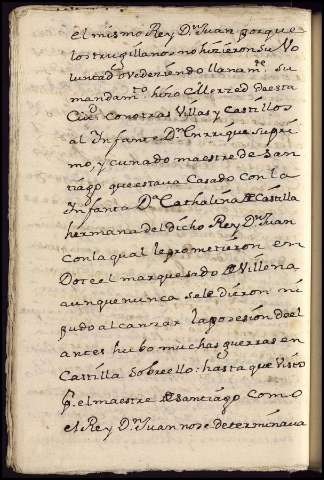 el mismo Rey Dn Juan porque
los trugillanos no hizieron su Vo
luntad oVedeçiendo llanamte. su
mandamto. hizo Merzed de esta
Ciud con otras Villas y Castillos
al Ynfante Dn Enrrique su pri
mo, y cunado maestre de San
tiago que estava Casado con la
Ynfanta Da Cathalina de Castilla
hermana del dicho Rey Dn Juan
con la qual le prometieron en
Dote el marquesado de Villena
aunque nunca se le dieron ni
pudo alcanzar la posesión del
antes hubo muchas guerras en
Castilla sobre ello: hasta que Visto
p. el maestre de Santiago Como
el Rey Dn Juan no se determinava